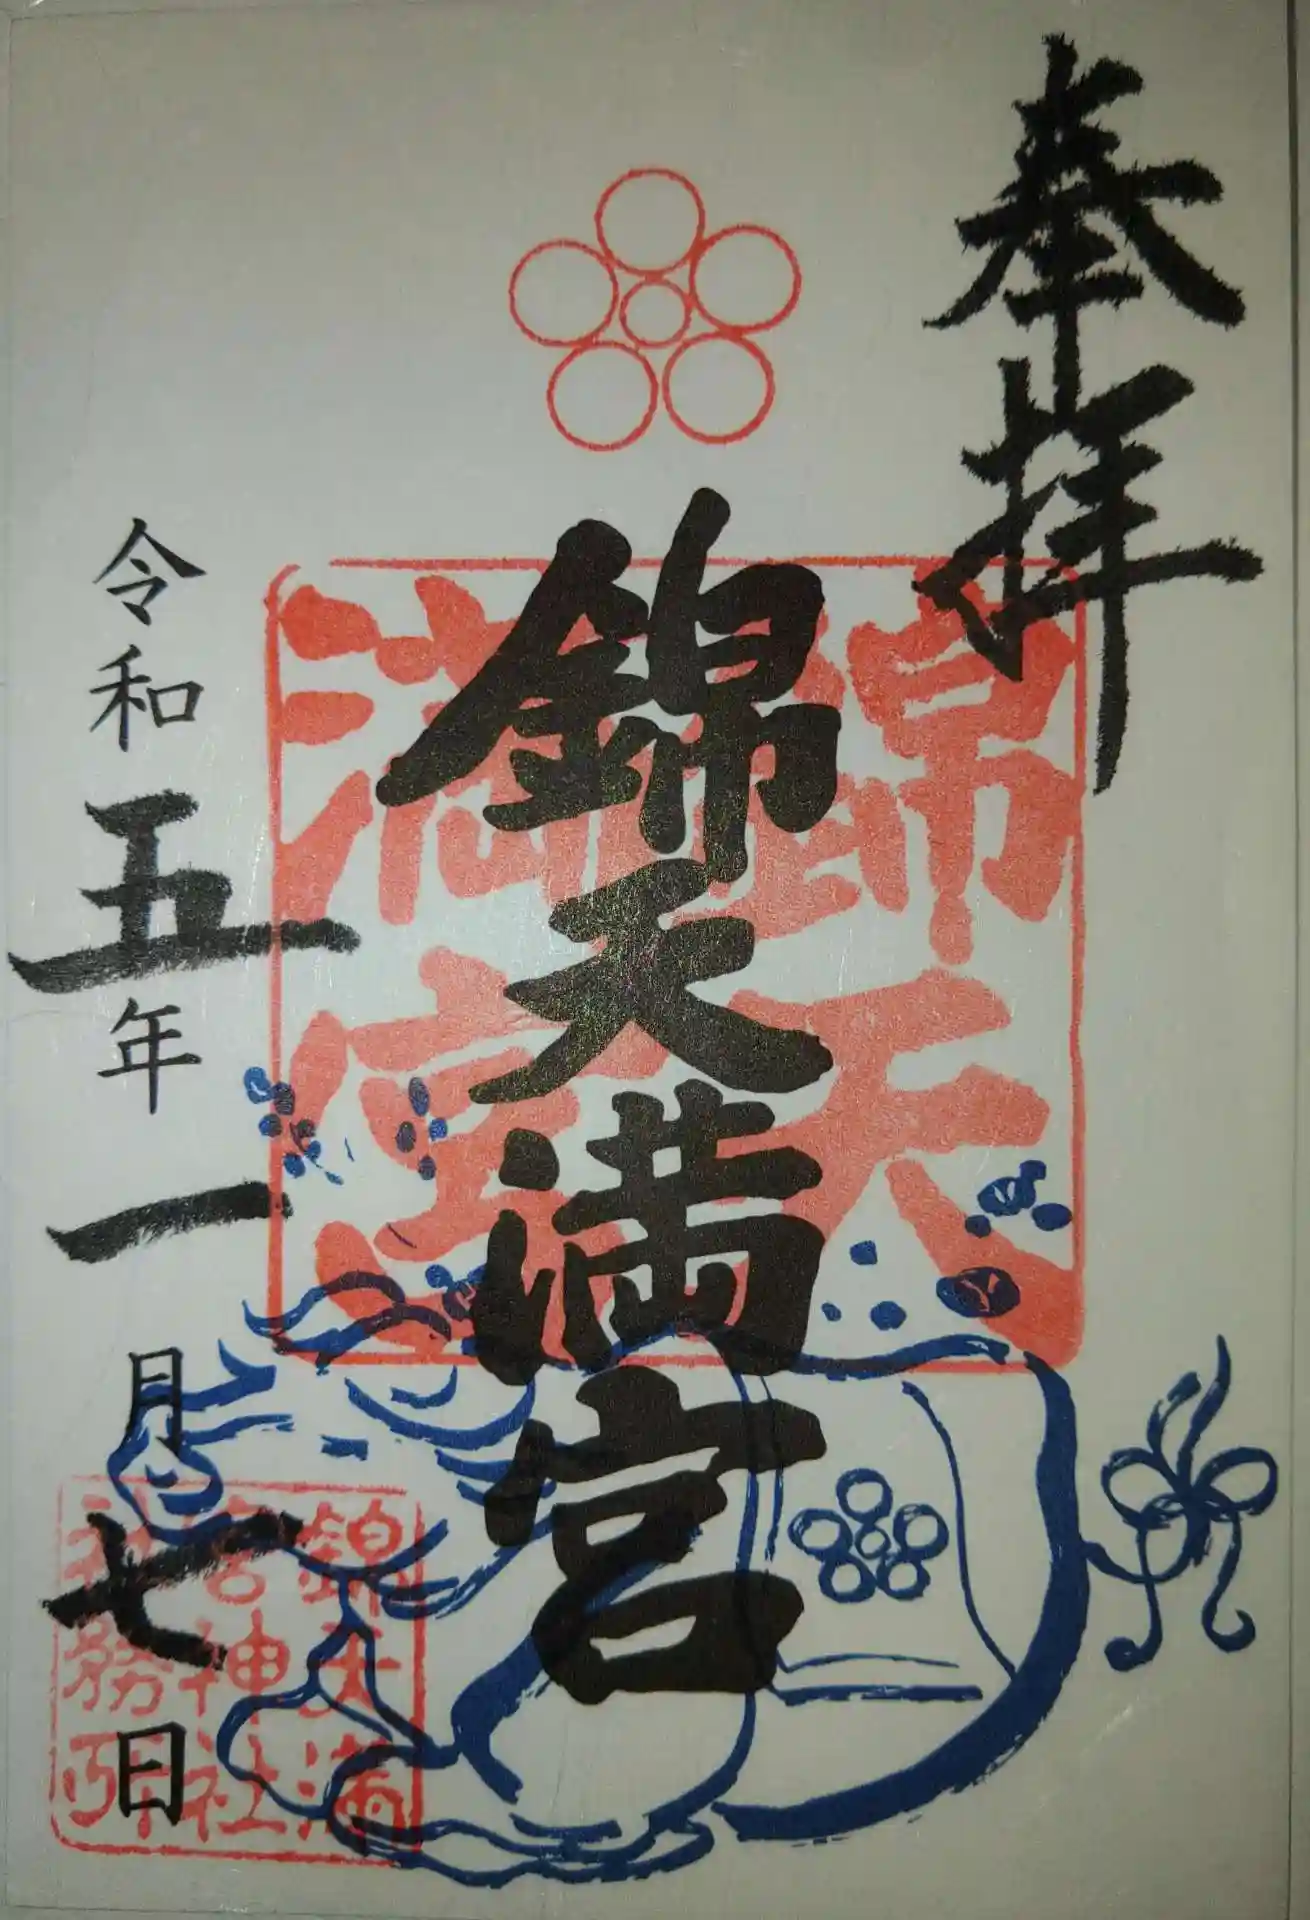 奉拝
錦天満宮
錦天満宮
令和五年一月七日
錦天満
宮神社
社務所